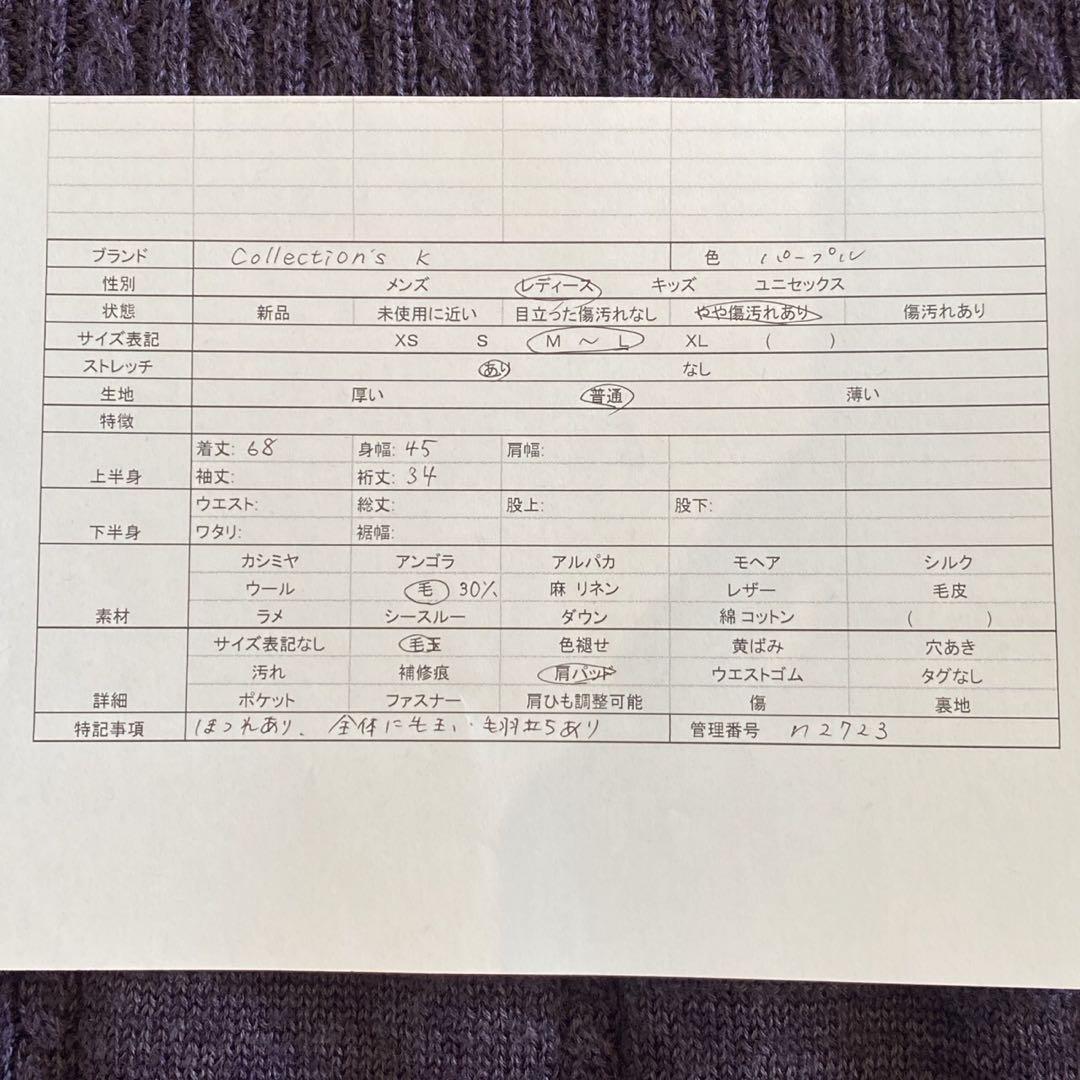 ブランド Collection's K 色 パープル
性別 メンズ レディース キッズ ユニセックス
状態 新品 未使用に近い 目立った傷汚れなし やや傷汚れあり 傷汚れあり
サイズ表記 XS S M ～ L XL ( )
ストレッチ あり なし
生地 厚い 普通 薄い
特徴
着丈: 68 身幅: 45 肩幅:
上半身 袖丈: 裄丈: 34
ウエスト: 総丈: 股上: 股下:
下半身 ワタリ: 裾幅:
カシミヤ アンゴラ アルパカ モヘア シルク
ウール 毛 30% 麻 リネン レザー 毛皮
素材 ラメ シースルー ダウン 綿 コットン ( )
サイズ表記なし 毛玉 色褪せ 黄ばみ 穴あき
汚れ 補修痕 肩パッド ウエストゴム タグなし
詳細 ポケット ファスナー 肩ひも調整可能 傷 裏地
特記事項 ほつれあり、全体に毛玉・毛羽立ちあり 管理番号 n2723